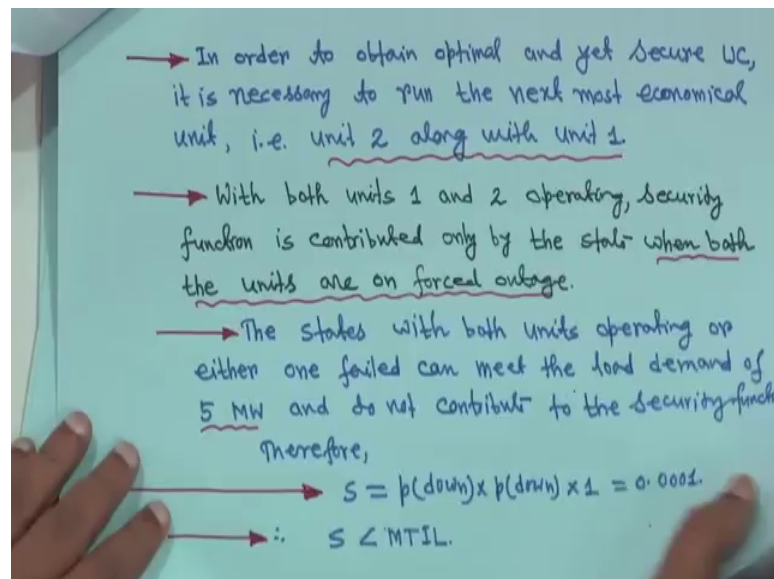 → In order to obtain optimal and yet secure UC,
it is necessary to run the next most economical
unit, i.e. unit 2 along with unit 1.
→ With both units 1 and 2 operating, security
function is contributed only by the state when both
the units are on forced outage.
→ The states with both units operating or
either one failed can meet the load demand of
5 MW and do not contribute to the security funct
Therefore,
→ S = p(down) x p(down) x 1 = 0.0001.
→ ∴ S < MTIL.